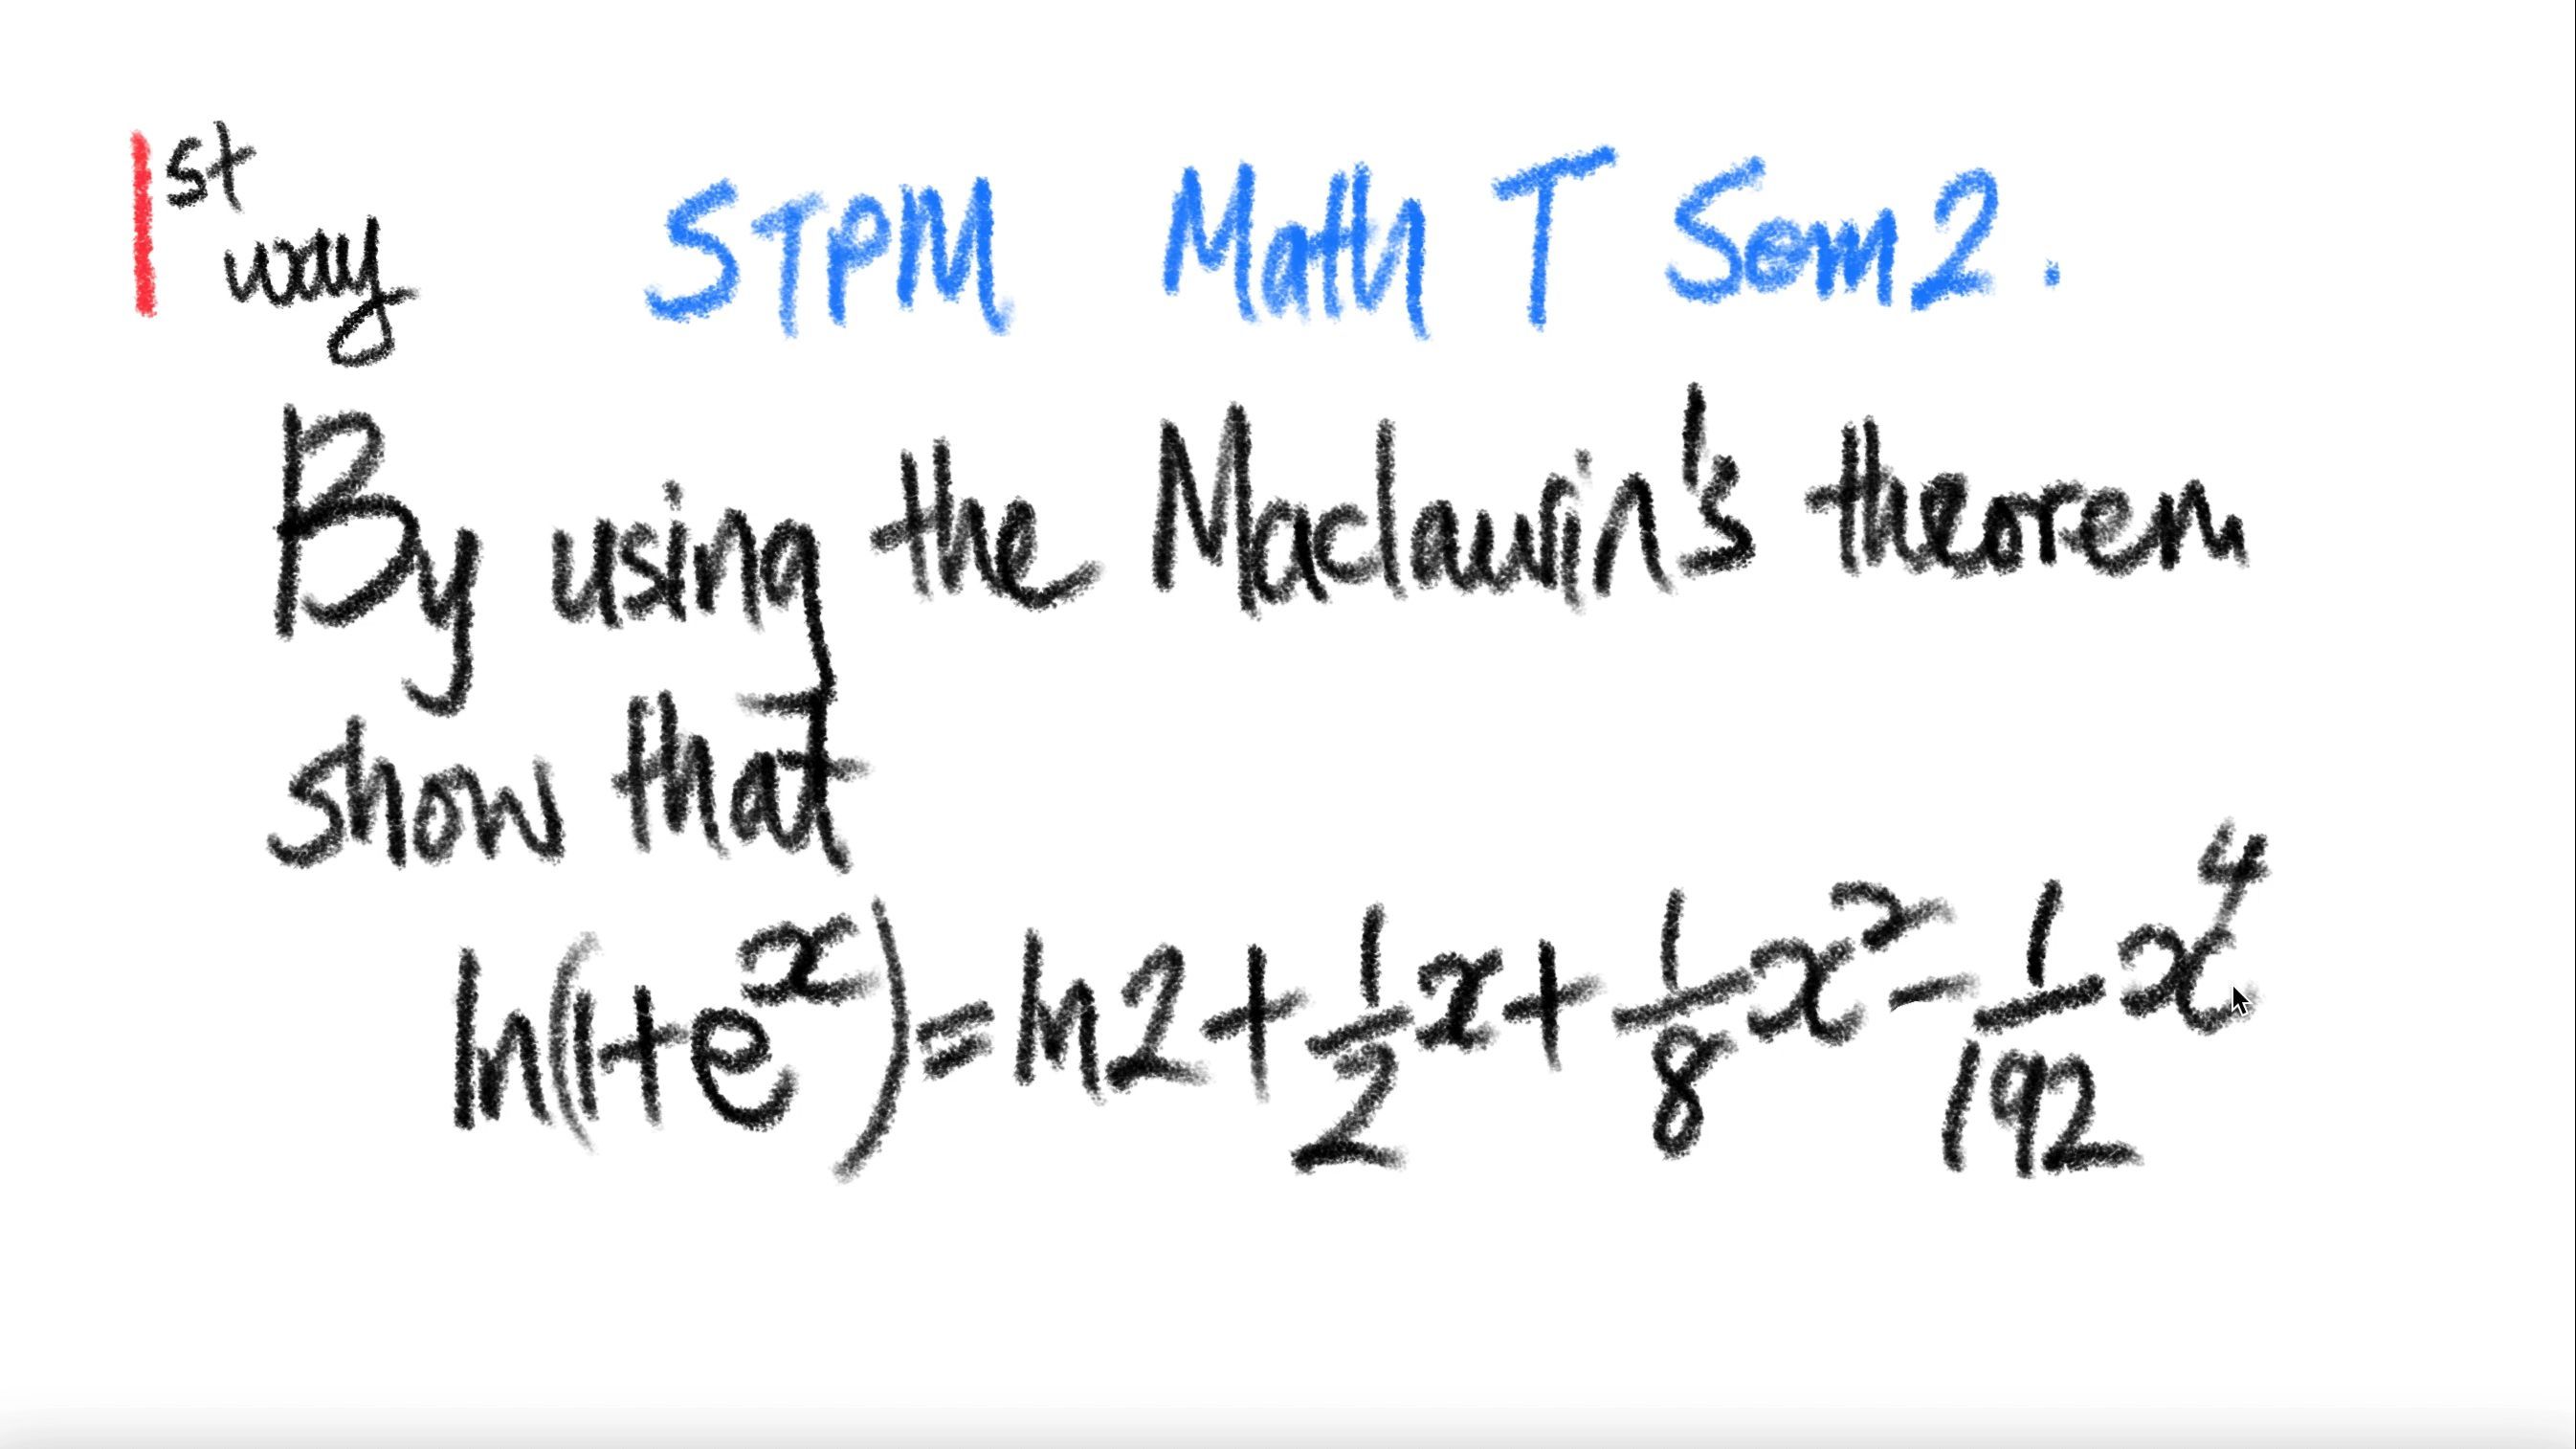 1st way
STPM Math T Sem 2.
By using the Maclaurin's theorem
show that
ln(1+e^x)=ln2+1/2x+1/8x^2-1/192x^4